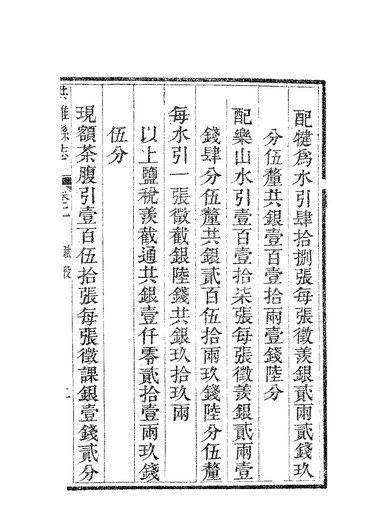 配犍爲水引肆拾捌張每張徵羨銀貳兩貳錢玖
分伍釐共銀壹百壹拾兩壹錢陸分
配樂山水引壹百壹拾柒張每張徵羨銀貳兩壹
錢肆分伍釐共銀貳百伍拾兩玖錢陸分伍釐
每水引一張徵截銀陸錢共銀玖拾玖兩
以上鹽稅羨截通共銀壹仟零貳拾壹兩玖錢
伍分
現額茶腹引壹百伍拾張每張徵課銀壹錢貳分
洪雅縣志
卷二